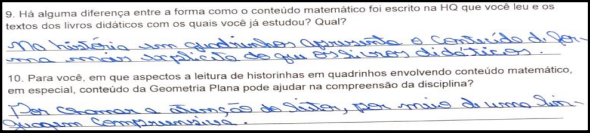 9. Há alguma diferença entre a forma como o conteúdo matemático foi escrito na HQ que você leu e os
textos dos livros didáticos com os quais você já estudou? Qual?
Na história em quadrinhos apresenta o conteúdo di for-
ma mais explicita do que os livros didáticos.
10. Para você, em que aspectos a leitura de historinhas em quadrinhos envolvendo conteúdo matemático,
em especial, conteúdo da Geometria Plana pode ajudar na compreensão da disciplina?
Por chamar a atenção do leitor, por meio de uma lin-
guagem compreensiva.